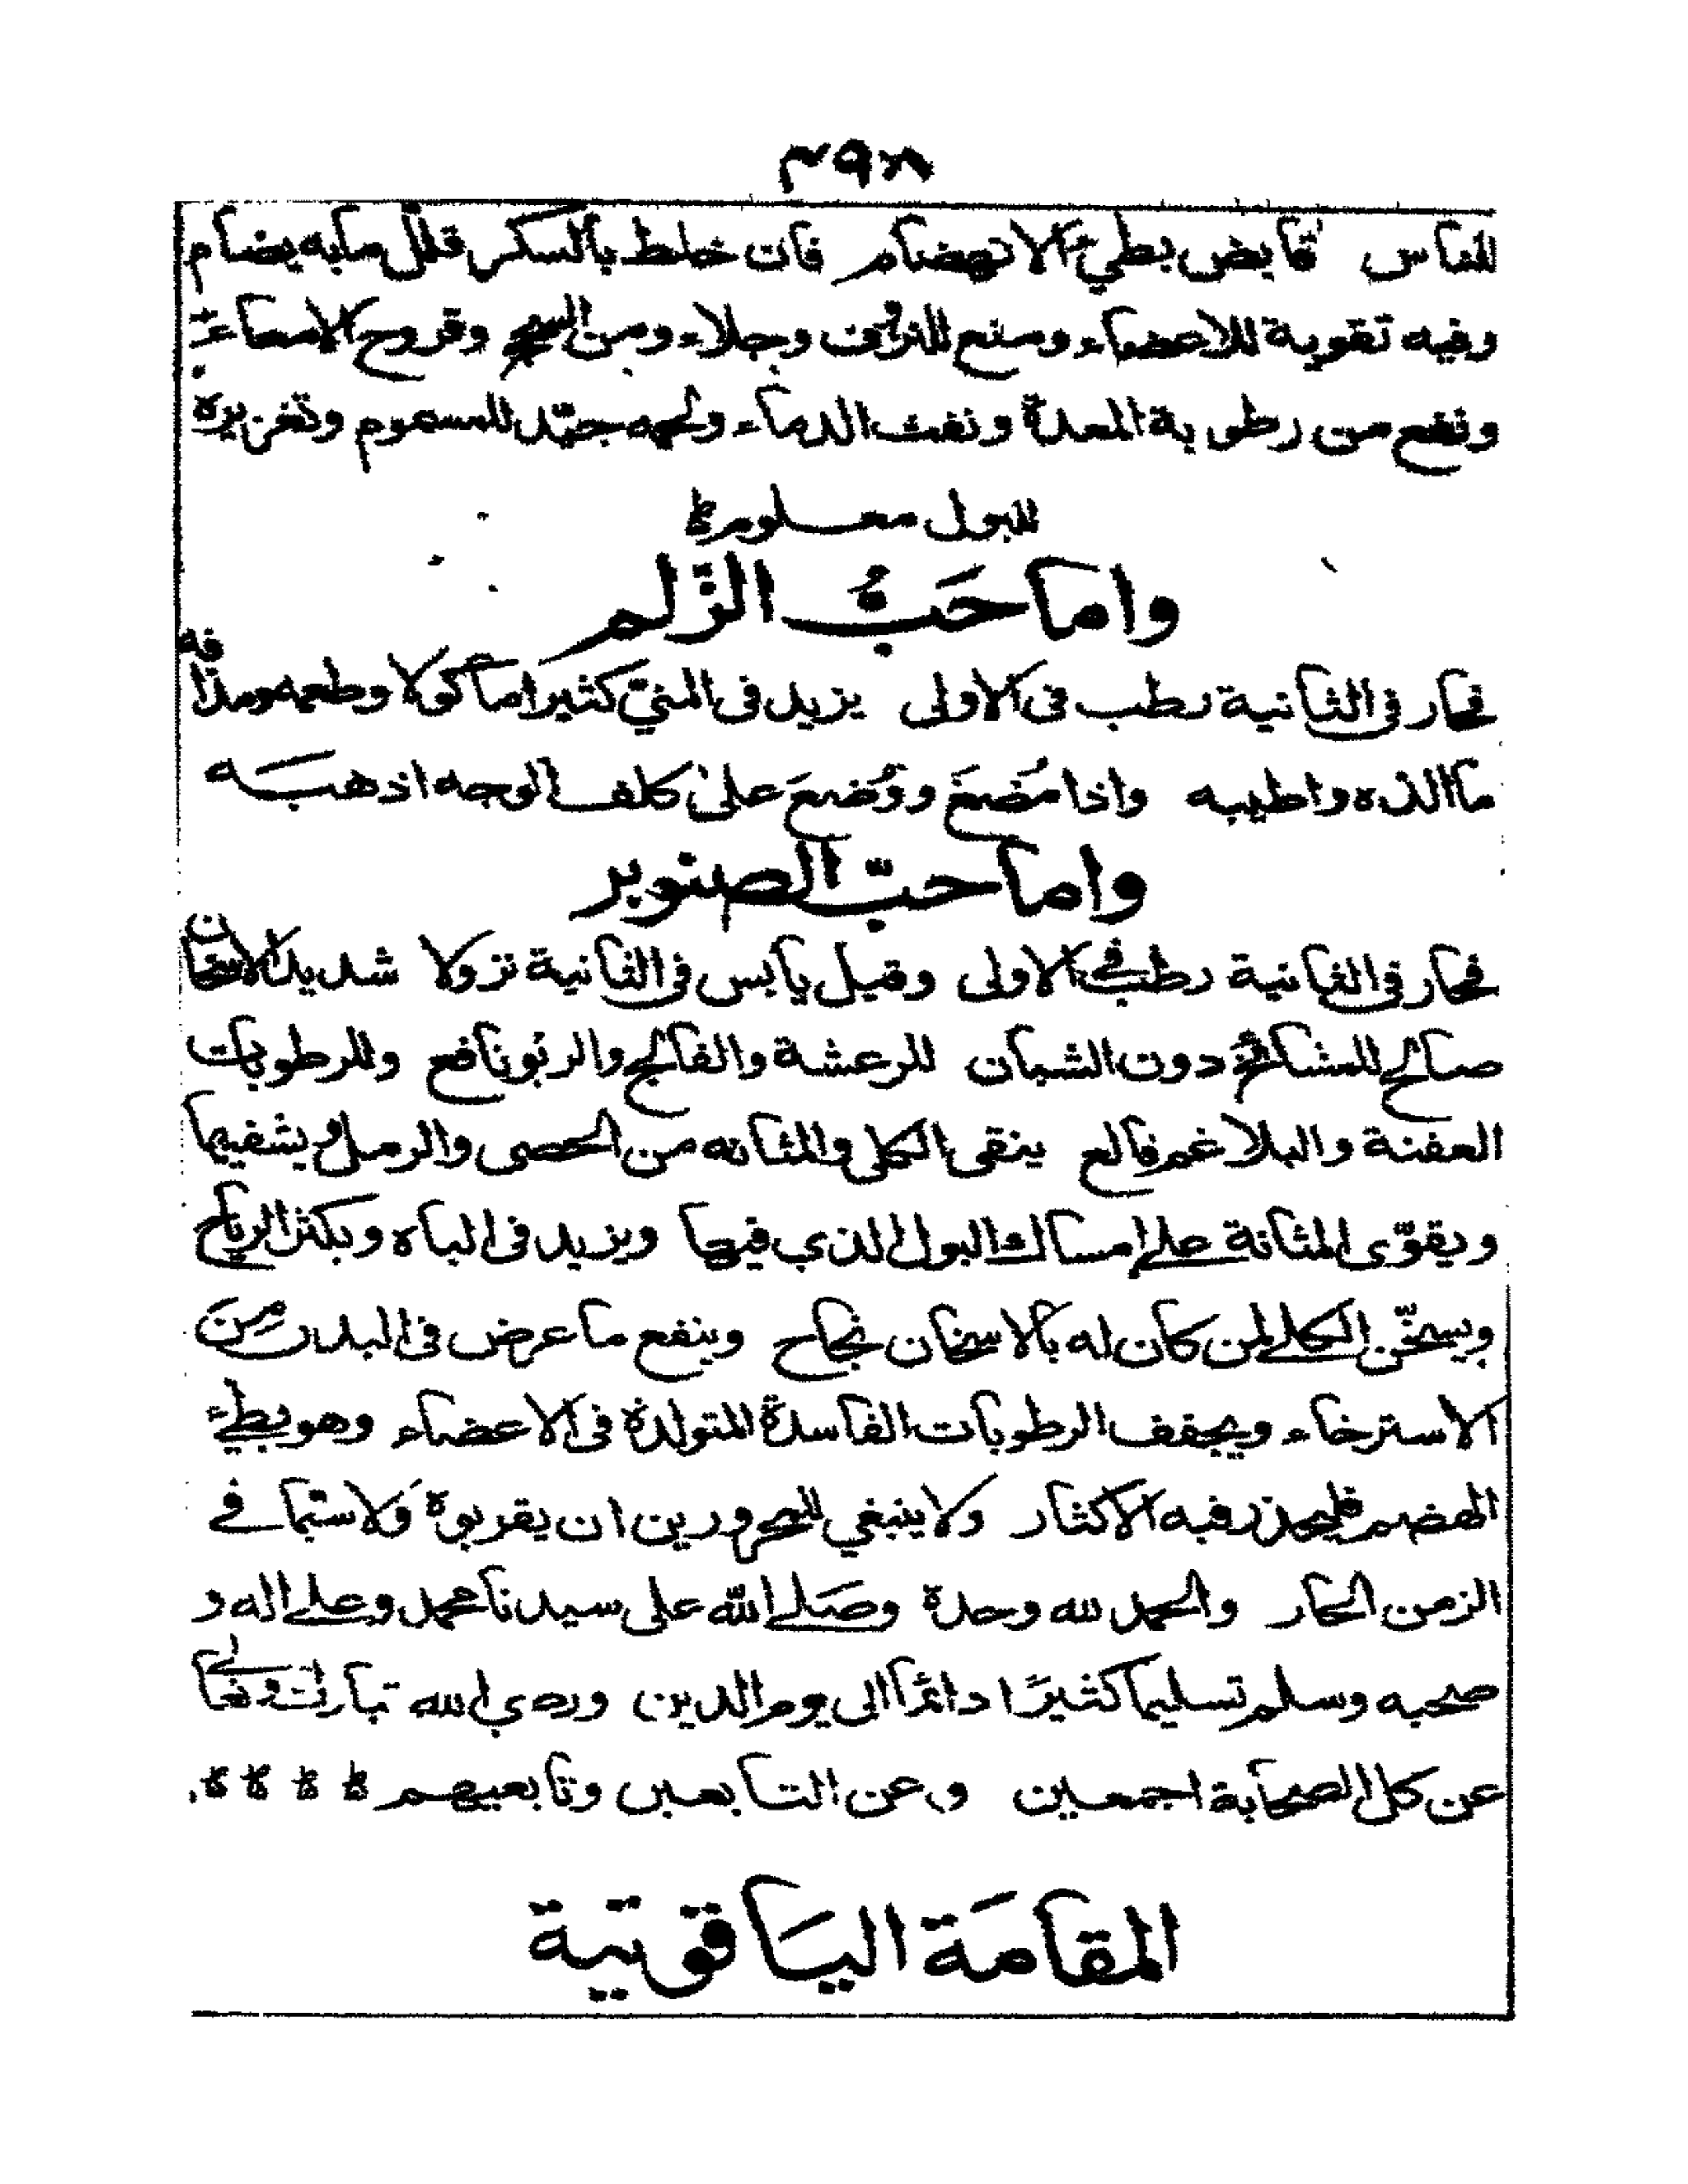 ٣٩٨
للناس قابض بطيء الانهضام فان خلط بالسكر قلل ما به يضام
وفيه تقوية للاعضاء ومنع للنزف وجلاء ومن السحج وقروح الامعاء
ونفع من رطوبة المعدة ونفث الدماء ولحمه جيّد للمسموم وتغزيره
للبول معلوم
واما حَبُّ الزَّلم
فحار فى الثانية رطب فى الاولى يزيد فى المنيّ كثيرا ماكولا وطعمه ومذاقه
ما الذه واطيبه واذا مُضغَ ووُضعَ على كلف الوجه اذهبَه
واما حبّ الصنوبر
فحار فى الثانية رطب فى الاولى وقيل يابس فى الثانية نزولا شديد الاسخان
صالح للمشائخ دون الشبان للرعشة والفالج والربو نافع وللرطوبات
العفنة والبلاغم قالع ينقى الكلى والمثانه من الحصى والرمل ويشفيها
ويقوّى المثانة على امساك البول الذي فيها ويزيد فى الباه ويكثر الرياح
ويسخّن الكلى لمن كان له بالاسخان نجاح وينفع ما عرض فى البدن مِن
الاسترخاء ويجفف الرطوبات الفاسدة المتولدة فى الاعضاء وهو بطيء
الهضم فليحذر فيه الاكثار ولا ينبغي للمحرورين ان يقربوه وَلا سيّما فى
الزمن الحار والحمد لله وحدة وصَلى الله على سيدنا محمد وعلى اله و
صحبه وسلم تسليما كثيرًا دائمًا الى يوم الدين ورضي الله تبارك وتعالى
عن كل الصحابة اجمعين وعن التابعين وتابعيهم
المقامَة اليَاقوتية